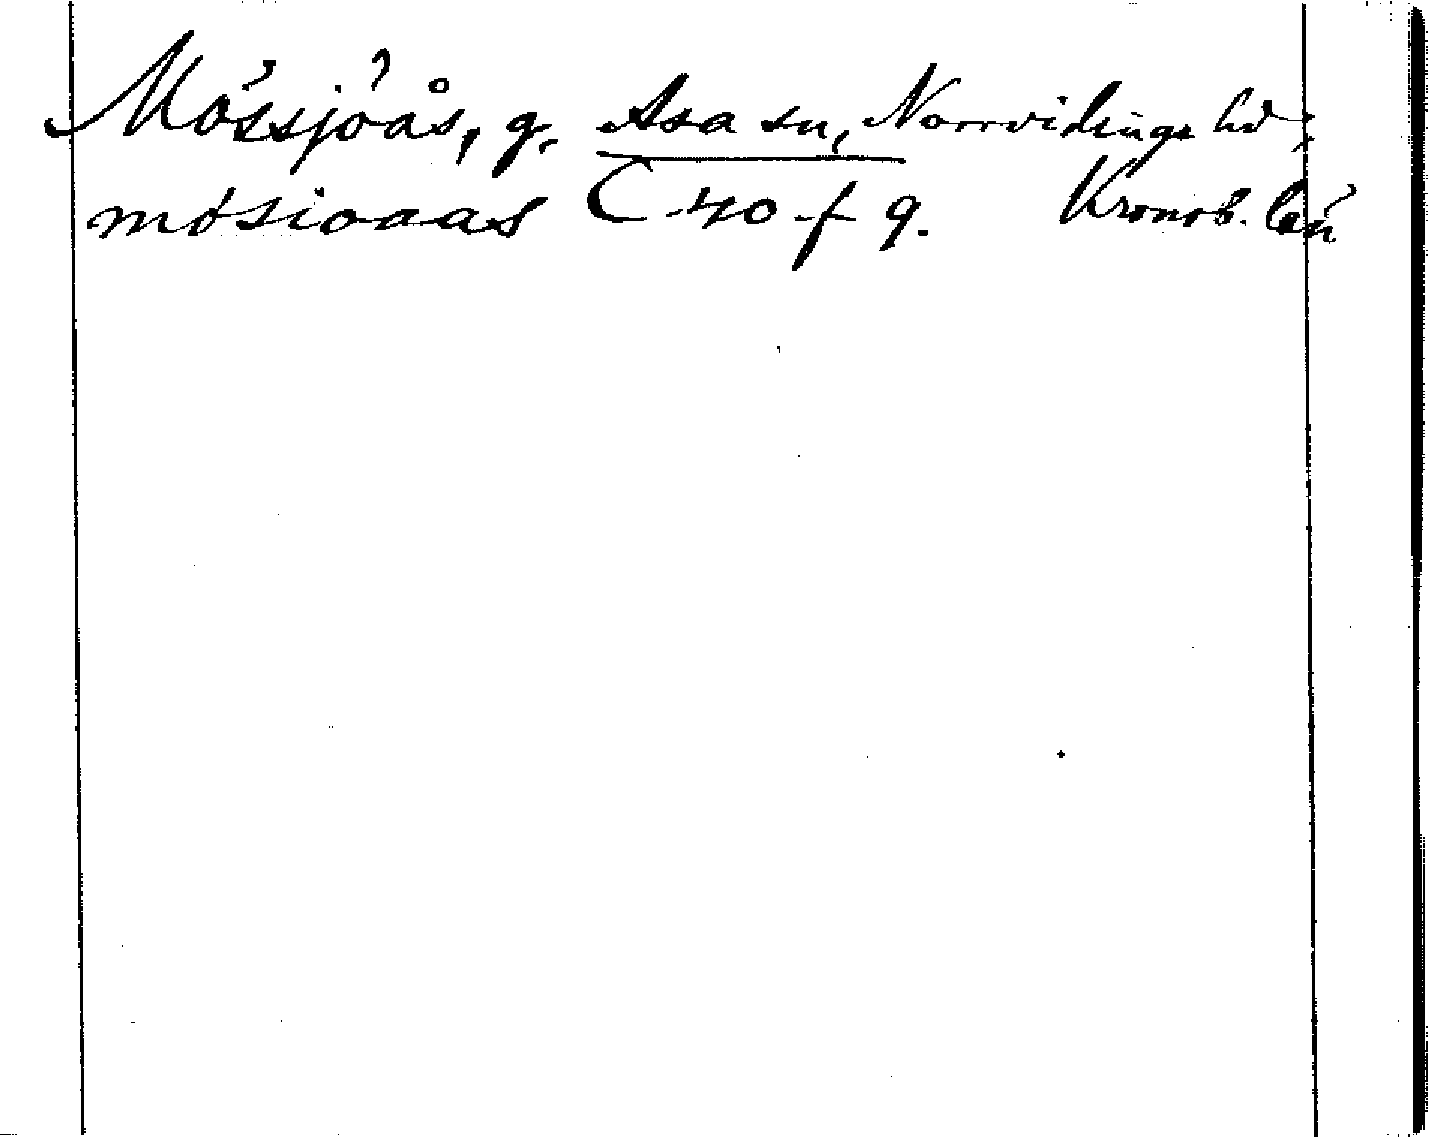 Mössjöås, g. Asa sn, Norrvidinge hd;
mösioaas C 40 f 9. Kronob. län